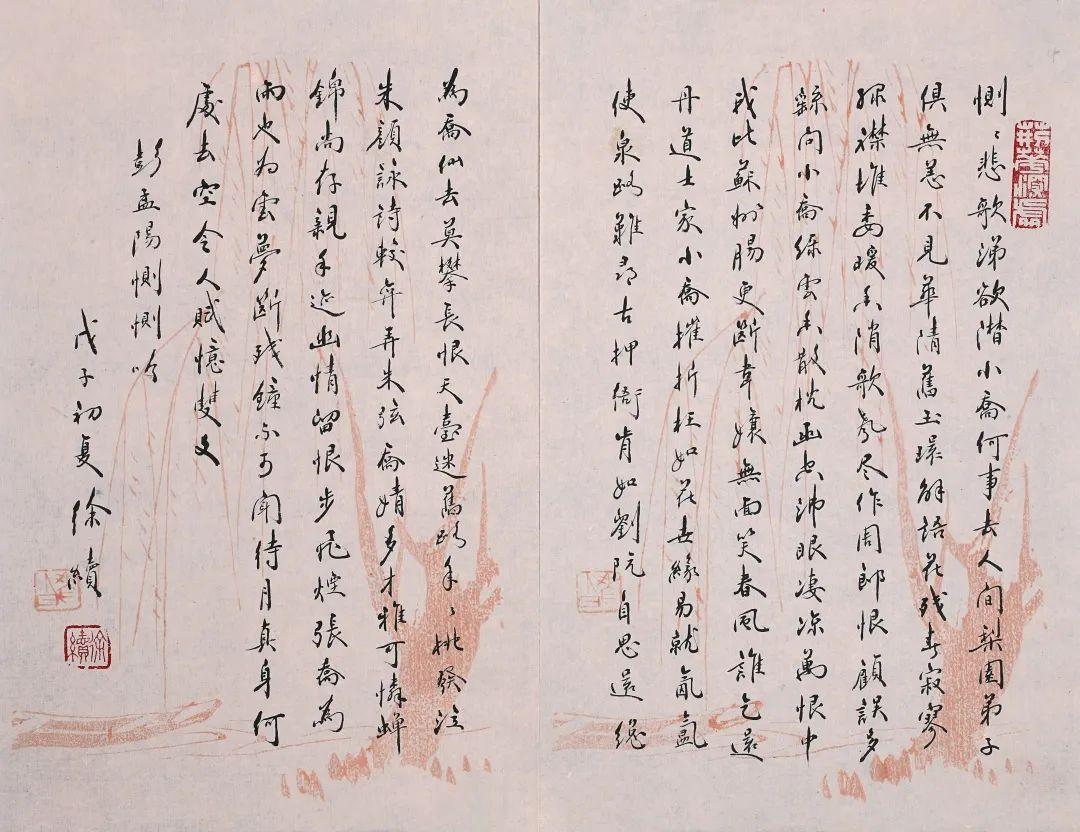 惻、悲歌涕欲潸小喬何事去人間梨園弟子
俱無恙不見華清舊玉環解語花殘春寂寥
襟堆委暖香消歌尽作周郎恨顧誤多
繇向小喬綠雲香散枕函空眼凄凉萬恨中
我比蘇州腸更斷韋孃無面笑春風誰乞還
丹道士家小喬摧折枉如花世緣易就氤氳
使泉路難尋古押衙肯如劉阮自思還總
為喬仙去莫攀長恨天臺迷舊路年、桃發泣
朱顏詠詩較弈弄朱弦喬婧多才雅可憐蟬
錦尚存親手迹幽情留恨步飛煙張喬為
雨也為雲夢斷殘鐘不可聞待月真身何
處去空令人賦憶雙文
彭孟陽惻惻吟
戊子初夏徐續
徐續